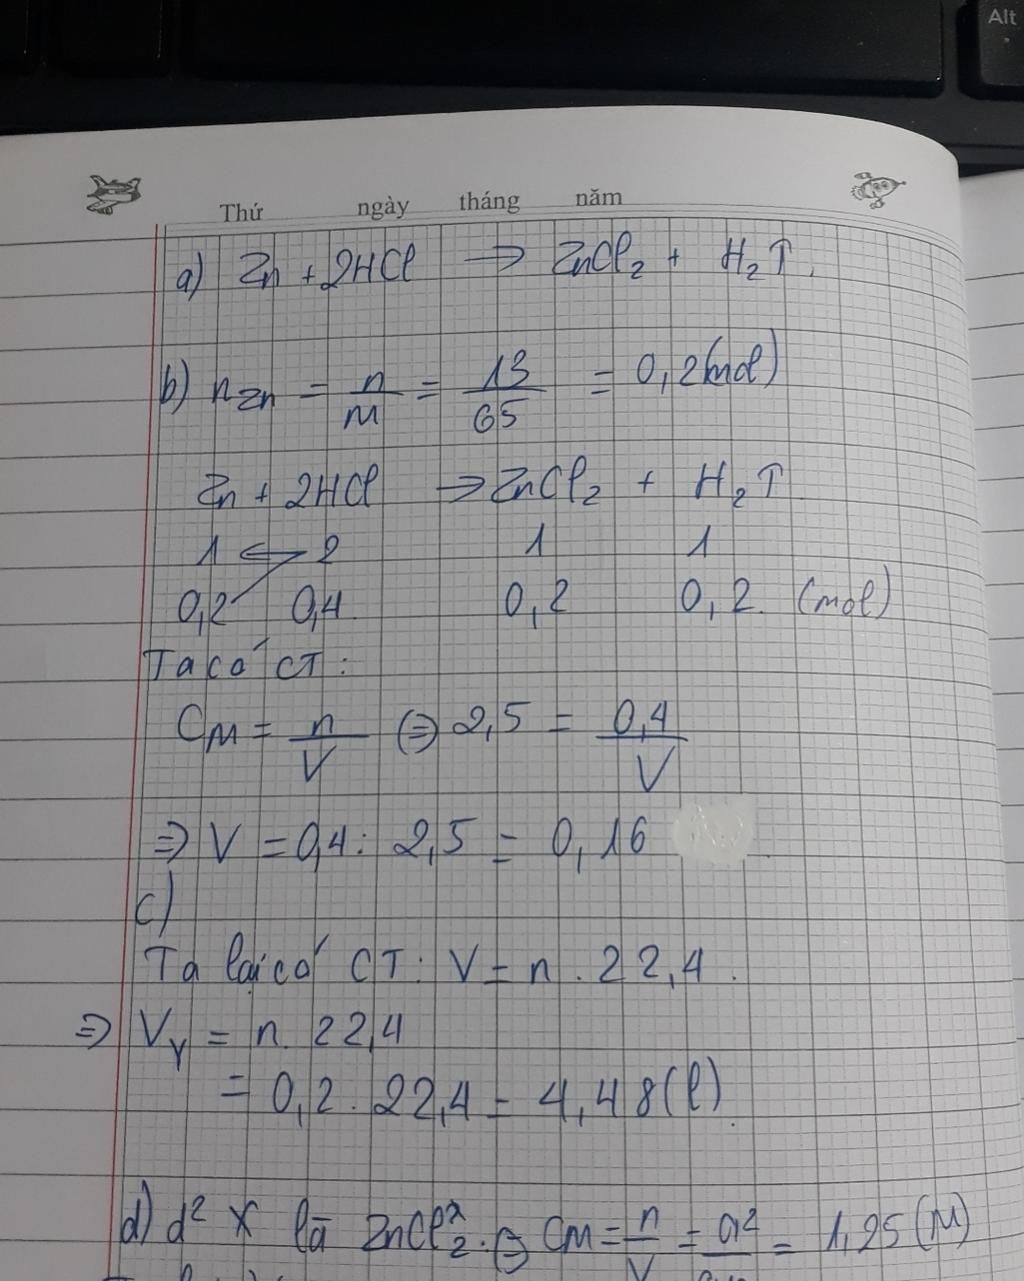 Alt
Thứ ngày tháng năm
a) Zn + 2HCl → ZnCl₂ + H₂↑.
b) nZn = n/M = 13/65 = 0,2(mol)
Zn + 2HCl → ZnCl₂ + H₂↑
1 2 1 1
0,2 0,4 0,2 0,2 (mol)
Ta có CT:
CM = n/V ⇔ 2,5 = 0,4/V
⇒ V = 0,4 : 2,5 = 0,16
c)
Ta lại có CT: V = n . 22,4.
⇒ VY = n. 22,4
= 0,2 . 22,4 = 4,48(l).
d) d² X là ZnCl₂. ⇔ CM = n/V = = 1,25 (M)